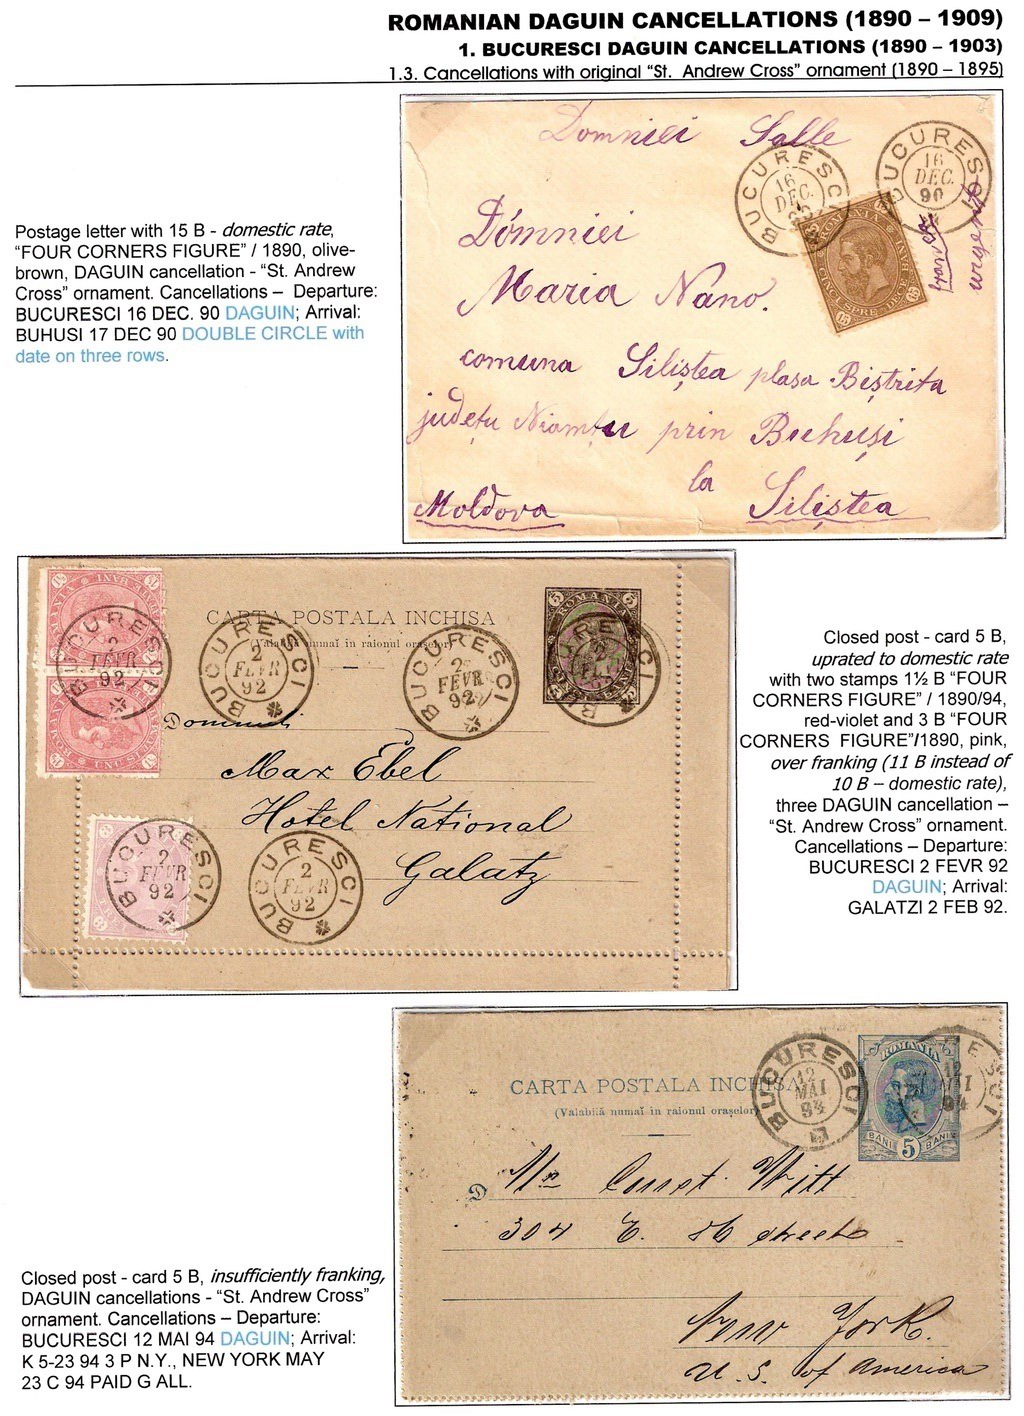 ROMANIAN DAGUIN CANCELLATIONS (1890 – 1909)
1. BUCURESCI DAGUIN CANCELLATIONS (1890 – 1903)
1.3. Cancellations with original “St. Andrew Cross” ornament (1890 – 1895)
Postage letter with 15 B - domestic rate,
“FOUR CORNERS FIGURE” / 1890, olive-
brown, DAGUIN cancellation - “St. Andrew
Cross” ornament. Cancellations – Departure:
BUCURESCI 16 DEC. 90 DAGUIN; Arrival:
BUHUSI 17 DEC 90 DOUBLE CIRCLE with
date on three rows.
Domniei Salle
BUCURESCI
16
DEC.
90
BUCURESCI
16
DEC.
90
ROMANIA
CINCI-SPRE-DECE BANI
15
urgent
Domniei
Maria Nano.
comuna Siliştea plasa Biştrita
judeţu Niamţu prin Buhuşi
la
Moldova Siliştea
Closed post - card 5 B,
uprated to domestic rate
with two stamps 1½ B “FOUR
CORNERS FIGURE” / 1890/94,
red-violet and 3 B “FOUR
CORNERS FIGURE”/1890, pink,
over franking (11 B instead of
10 B – domestic rate),
three DAGUIN cancellation –
“St. Andrew Cross” ornament.
Cancellations – Departure:
BUCURESCI 2 FEVR 92
DAGUIN; Arrival:
GALATZI 2 FEB 92.
CARTA POSTALA INCHISA
(Valabila numai in raionul oraşelor)
ROMANIA
5 5
BUCURESCI
2
FEVR
92
BUCURESCI
2
FEVR
92
BUCURESCI
2
FEVR
92
BUCURESCI
2
Domnului
Max Ebel
Hotel National
Galatz
BUCURESCI
2
FEVR
92
BUCURESCI
2
FEVR
92
CARTA POSTALA INCHISA
(Valabilă numai în raionul oraşelor)
ROMANIA
BANI 5 BANI
BUCURESCI
12
MAI
94
12
MAI
94
D Mr Const. Witt
304 E. St street
New York.
U. S. of America
Closed post - card 5 B, insufficiently franking,
DAGUIN cancellations - “St. Andrew Cross”
ornament. Cancellations – Departure:
BUCURESCI 12 MAI 94 DAGUIN; Arrival:
K 5-23 94 3 P N.Y., NEW YORK MAY
23 C 94 PAID G ALL.